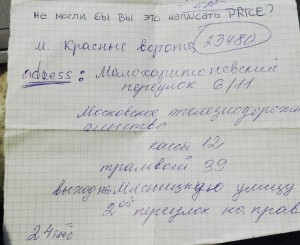 не могли бы Вы это написать PRICE?
м. Красные ворота 23480
adress: Малохаритоньевский
переулок 6/11
Московское железнодорожн
агентство
кассы 12
трамвай 39
выход на Мясницкую улицу
2ой переулок на прав
24